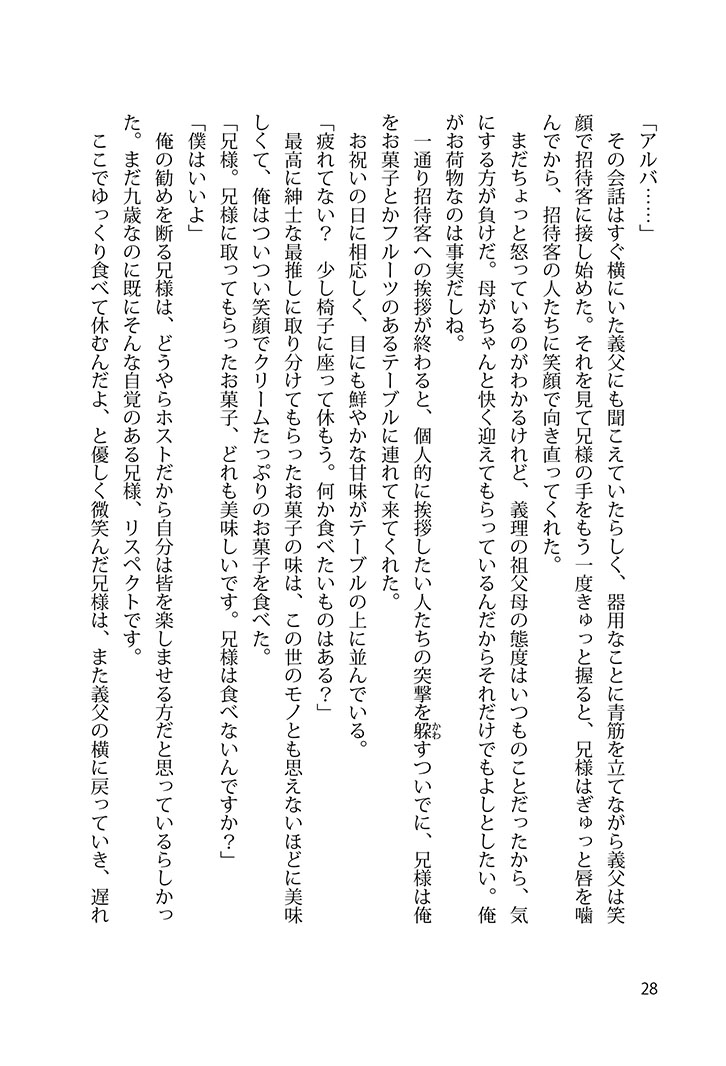 「アルバ……」
　その会話はすぐ横にいた義父にも聞こえていたらしく、器用なことに青筋を立てながら義父は笑
顔で招待客に接し始めた。それを見て兄様の手をもう一度きゅっと握ると、兄様はぎゅっと唇を噛
んでから、招待客の人たちに笑顔で向き直ってくれた。
　まだちょっと怒っているのがわかるけれど、義理の祖父母の態度はいつものことだったから、気
にする方が負けだ。母がちゃんと快く迎えてもらっているんだからそれだけでもよしとしたい。俺
がお荷物なのは事実だしね。
　一通り招待客への挨拶が終わると、個人的に挨拶したい人たちの突撃を躱すついでに、兄様は俺
をお菓子とかフルーツのあるテーブルに連れて来てくれた。
　お祝いの日に相応しく、目にも鮮やかな甘味がテーブルの上に並んでいる。
「疲れてない？　少し椅子に座って休もう。何か食べたいものはある？」
　最高に紳士な最推しに取り分けてもらったお菓子の味は、この世のモノとも思えないほどに美味
しくて、俺はついつい笑顔でクリームたっぷりのお菓子を食べた。
「兄様。兄様に取ってもらったお菓子、どれも美味しいです。兄様は食べないんですか？」
「僕はいいよ」
　俺の勧めを断る兄様は、どうやらホストだから自分は皆を楽しませる方だと思っているらしかっ
た。まだ九歳なのに既にそんな自覚のある兄様、リスペクトです。
　ここでゆっくり食べて休むんだよ、と優しく微笑んだ兄様は、また義父の横に戻っていき、遅れ
かわ
28